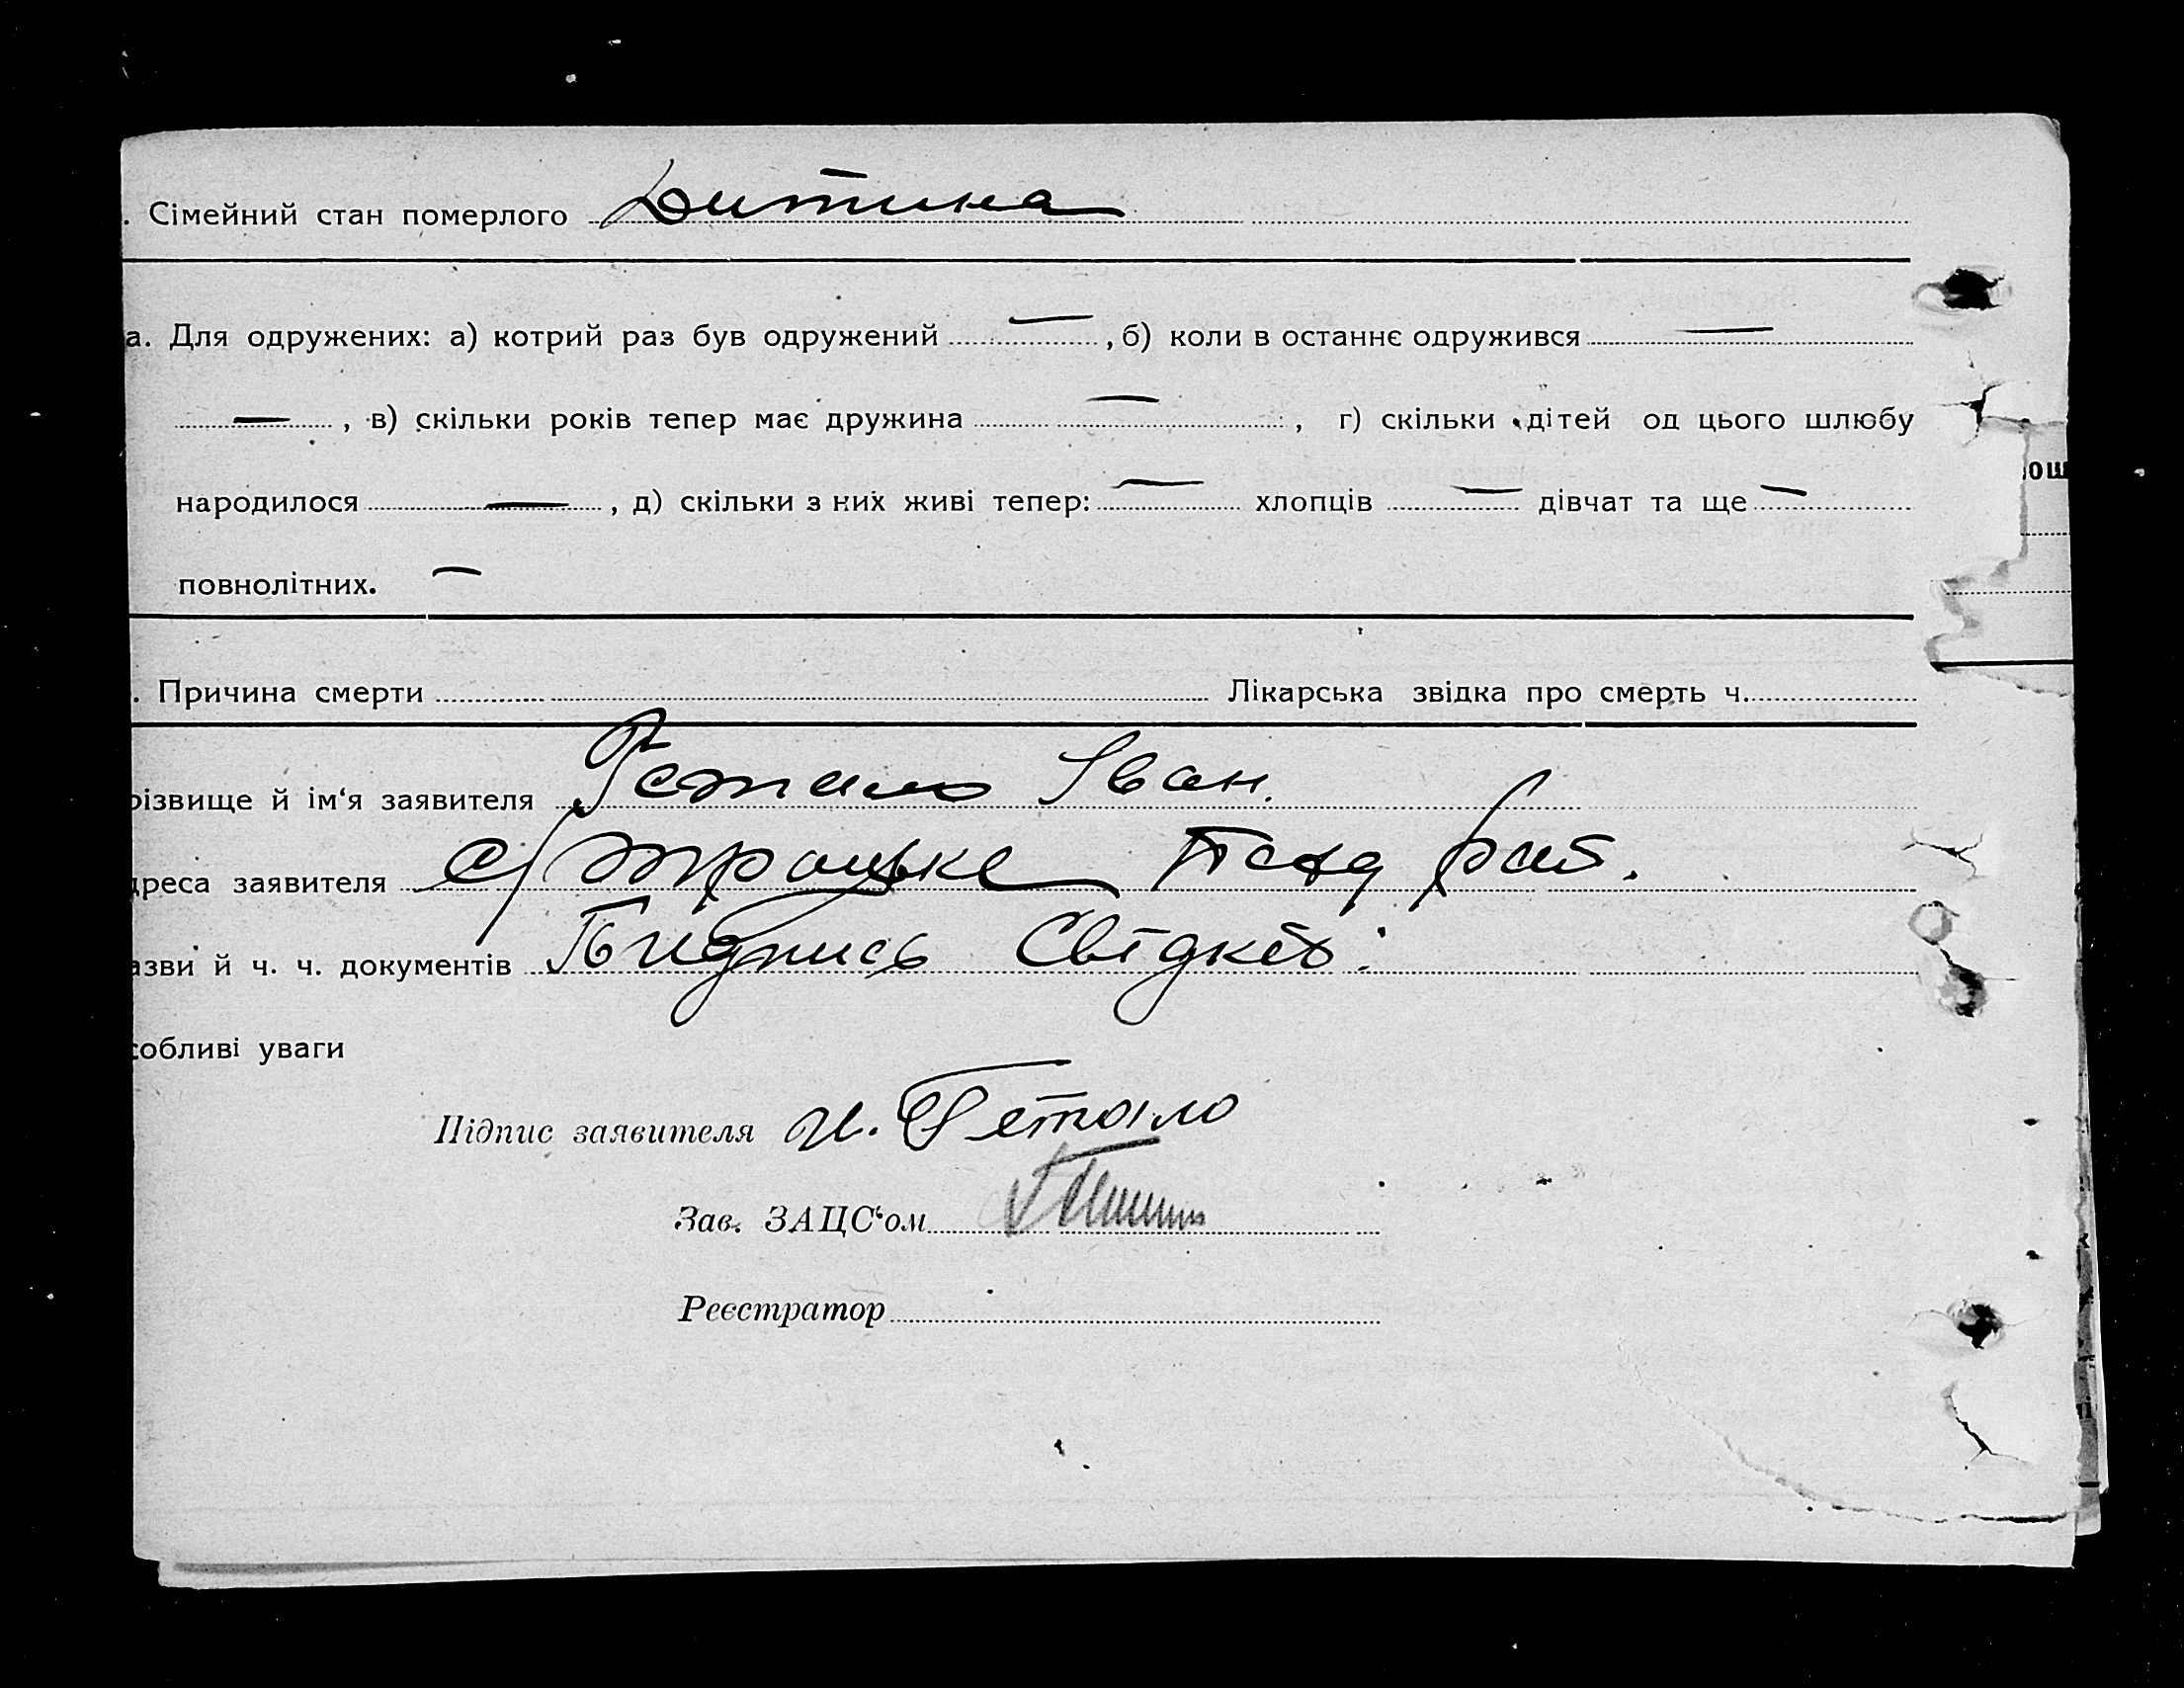 . Сімейний стан померлого Дитина
а. Для одружених: а) котрий раз був одружений — , б) коли в останнє одружився —
— , в) скільки років тепер має дружина — , г) скільки дітей од цього шлюбу
народилося — , д) скільки з них живі тепер: — хлопців — дівчат та ще —
повнолітних. —
. Причина смерти Лікарська звідка про смерть ч.
різвище й ім‘я заявителя Іван.
дреса заявителя с/ троцьке рай.
азви й ч. ч. документів Підпись Свідків:
собливі уваги
Підпис заявителя И. Гетало
Зав. ЗАЦС‘ом
Реєстратор
ош